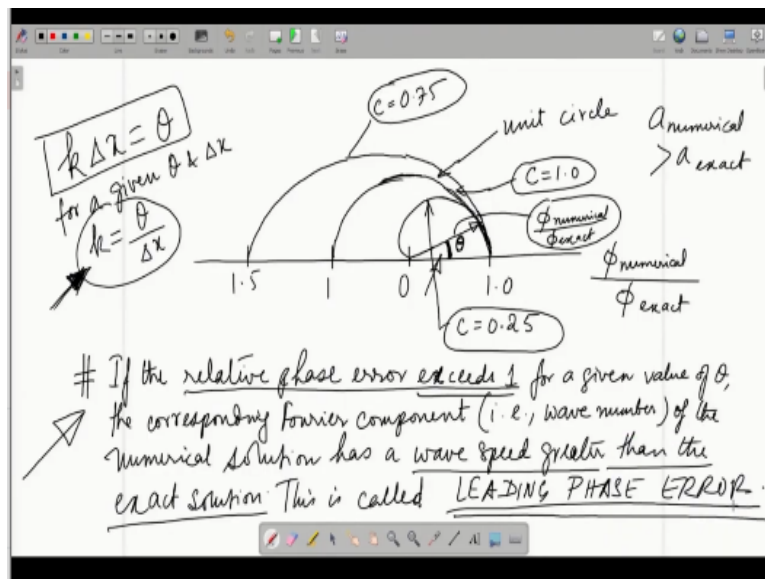 k Δx = θ
for a given θ & Δx
k = θ / Δx
C = 0.75
unit circle
C = 1.0
a numerical
> a exact
ϕ numerical
ϕ exact
θ
ϕ numerical
ϕ exact
1.5 1 0 1.0
C = 0.25
# If the relative phase error exceeds 1 for a given value of θ,
the corresponding Fourier component (i.e., wave number) of the
numerical solution has a wave speed greater than the
exact solution. This is called LEADING PHASE ERROR.